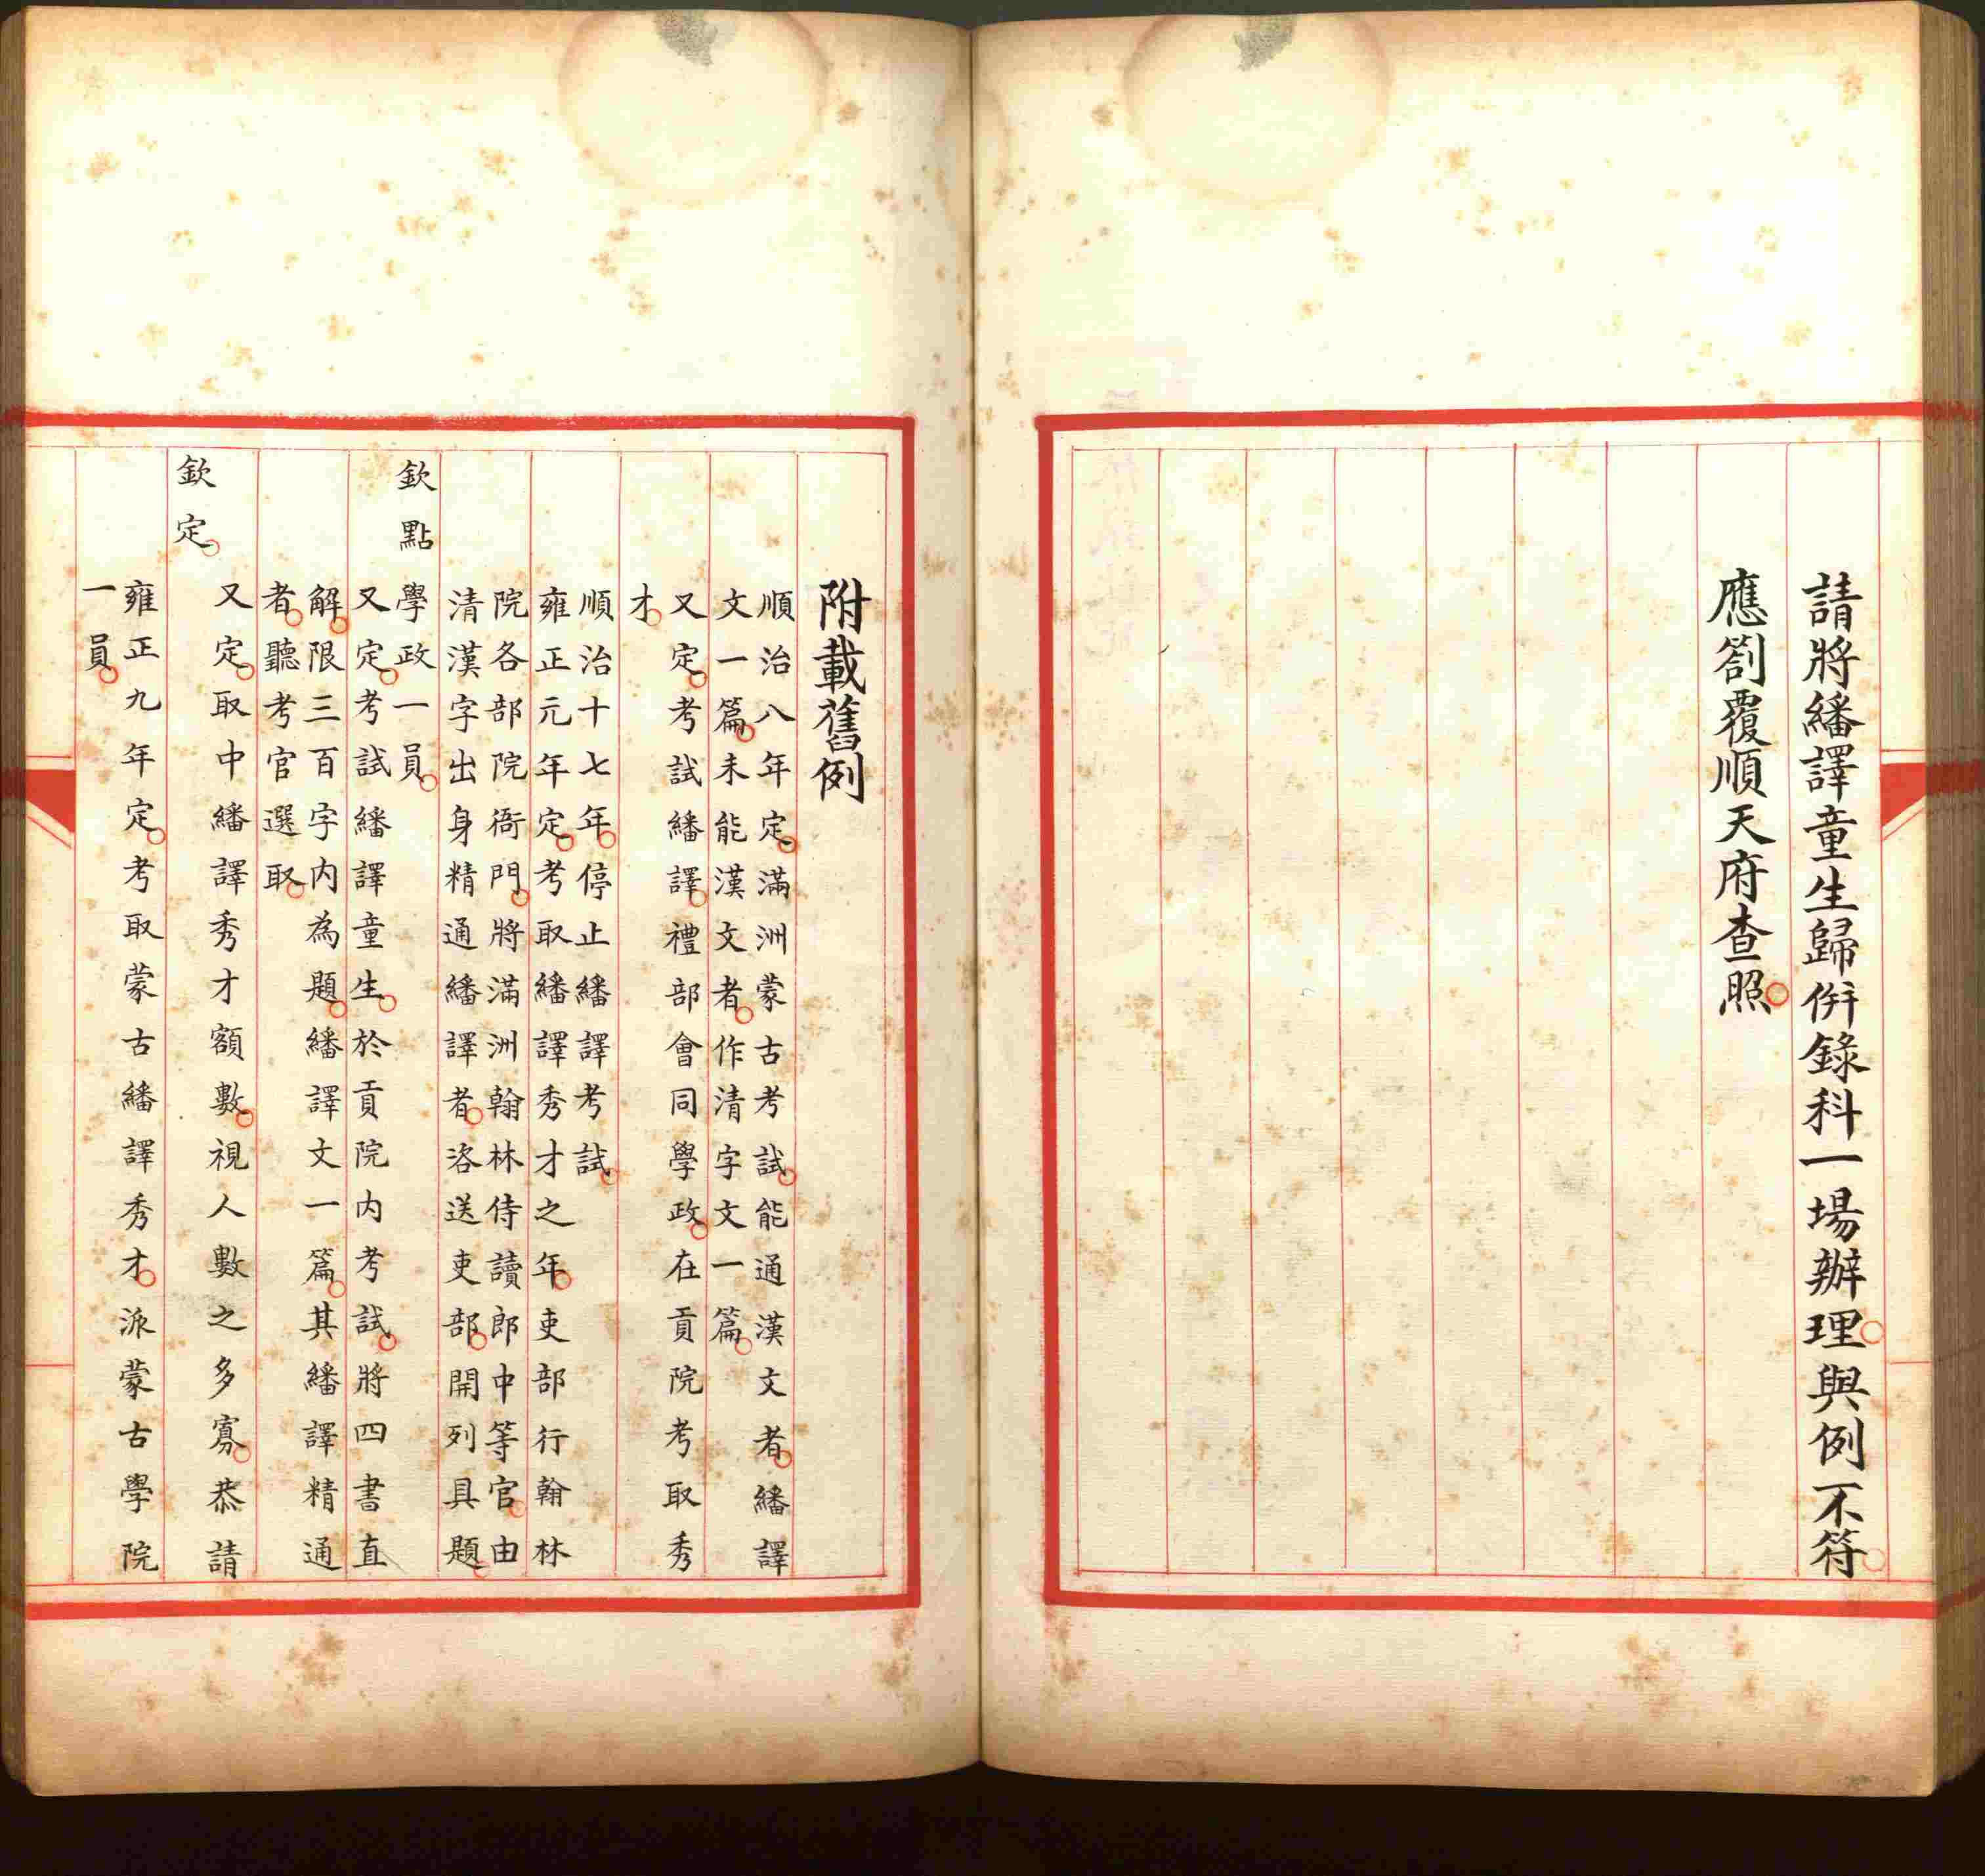 請將繙譯童生歸併錄科一場辦理與例不符
應劄覆順天府查照
附載舊例
順治八年定滿洲蒙古考試能通漢文者繙譯
文一篇未能漢文者作清字文一篇
又定考試繙譯禮部會同學政在貢院考取秀
才
順治十七年停止繙譯考試
雍正元年定考取繙譯秀才之年吏部行翰林
院各部院衙門將滿洲翰林侍讀郎中等官由
清漢字出身精通繙譯者咨送吏部開列具題
欽點學政一員
又定考試繙譯童生於貢院內考試將四書直
解限三百字內為題繙譯文一篇其繙譯精通
者聽考官選取
又定取中繙譯秀才額數視人數之多寡恭請
欽定
雍正九年定考取蒙古繙譯秀才派蒙古學院
一員